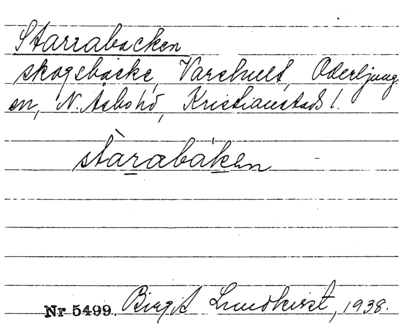 Starrabacken
skogsbacke, Varshult, Oderljung
en, N. Åsbohd, Kristianstads l.
stàrabáken
Nr 5499. Birgit Lundkvist, 1938.